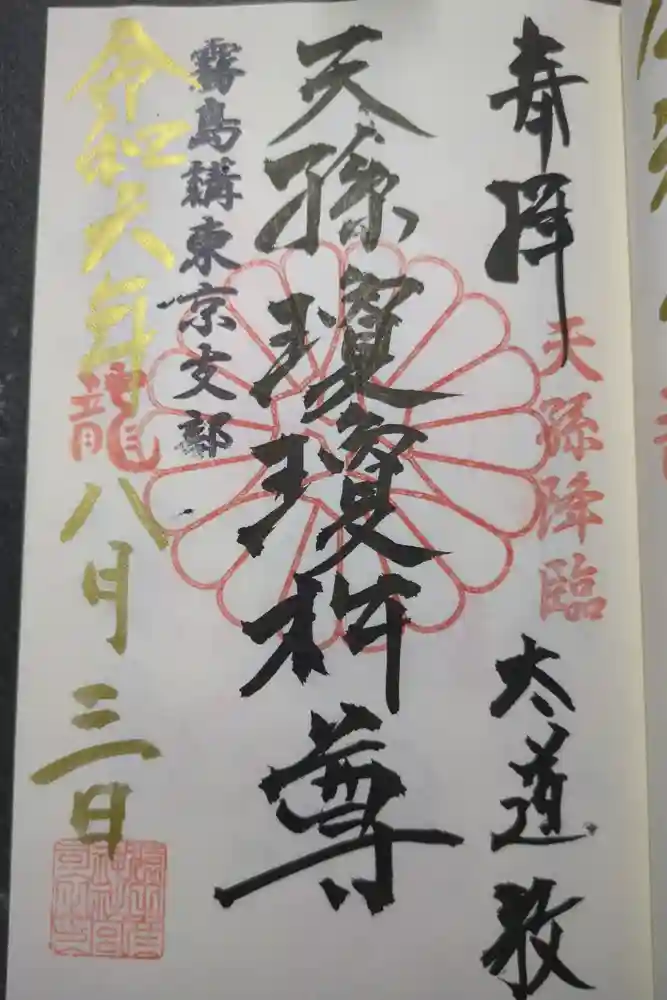 奉拝
天孫降臨
太道教
天孫瓊瓊杵尊
霧島講東京支部
令和六年龍八月三日